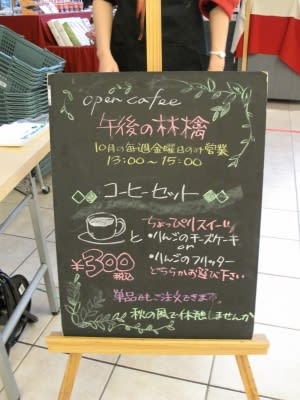 open cafee
午後の林檎
10月の毎週金曜日のみ営業
13:00~15:00
コーヒーセット
と
ちょっぴりスイーツ
・りんごのチーズケーキ
or
・りんごのフリッター
どちらかお選び下さい
¥300
税込
単品でもご注文できます。
秋の風で休憩しませんか